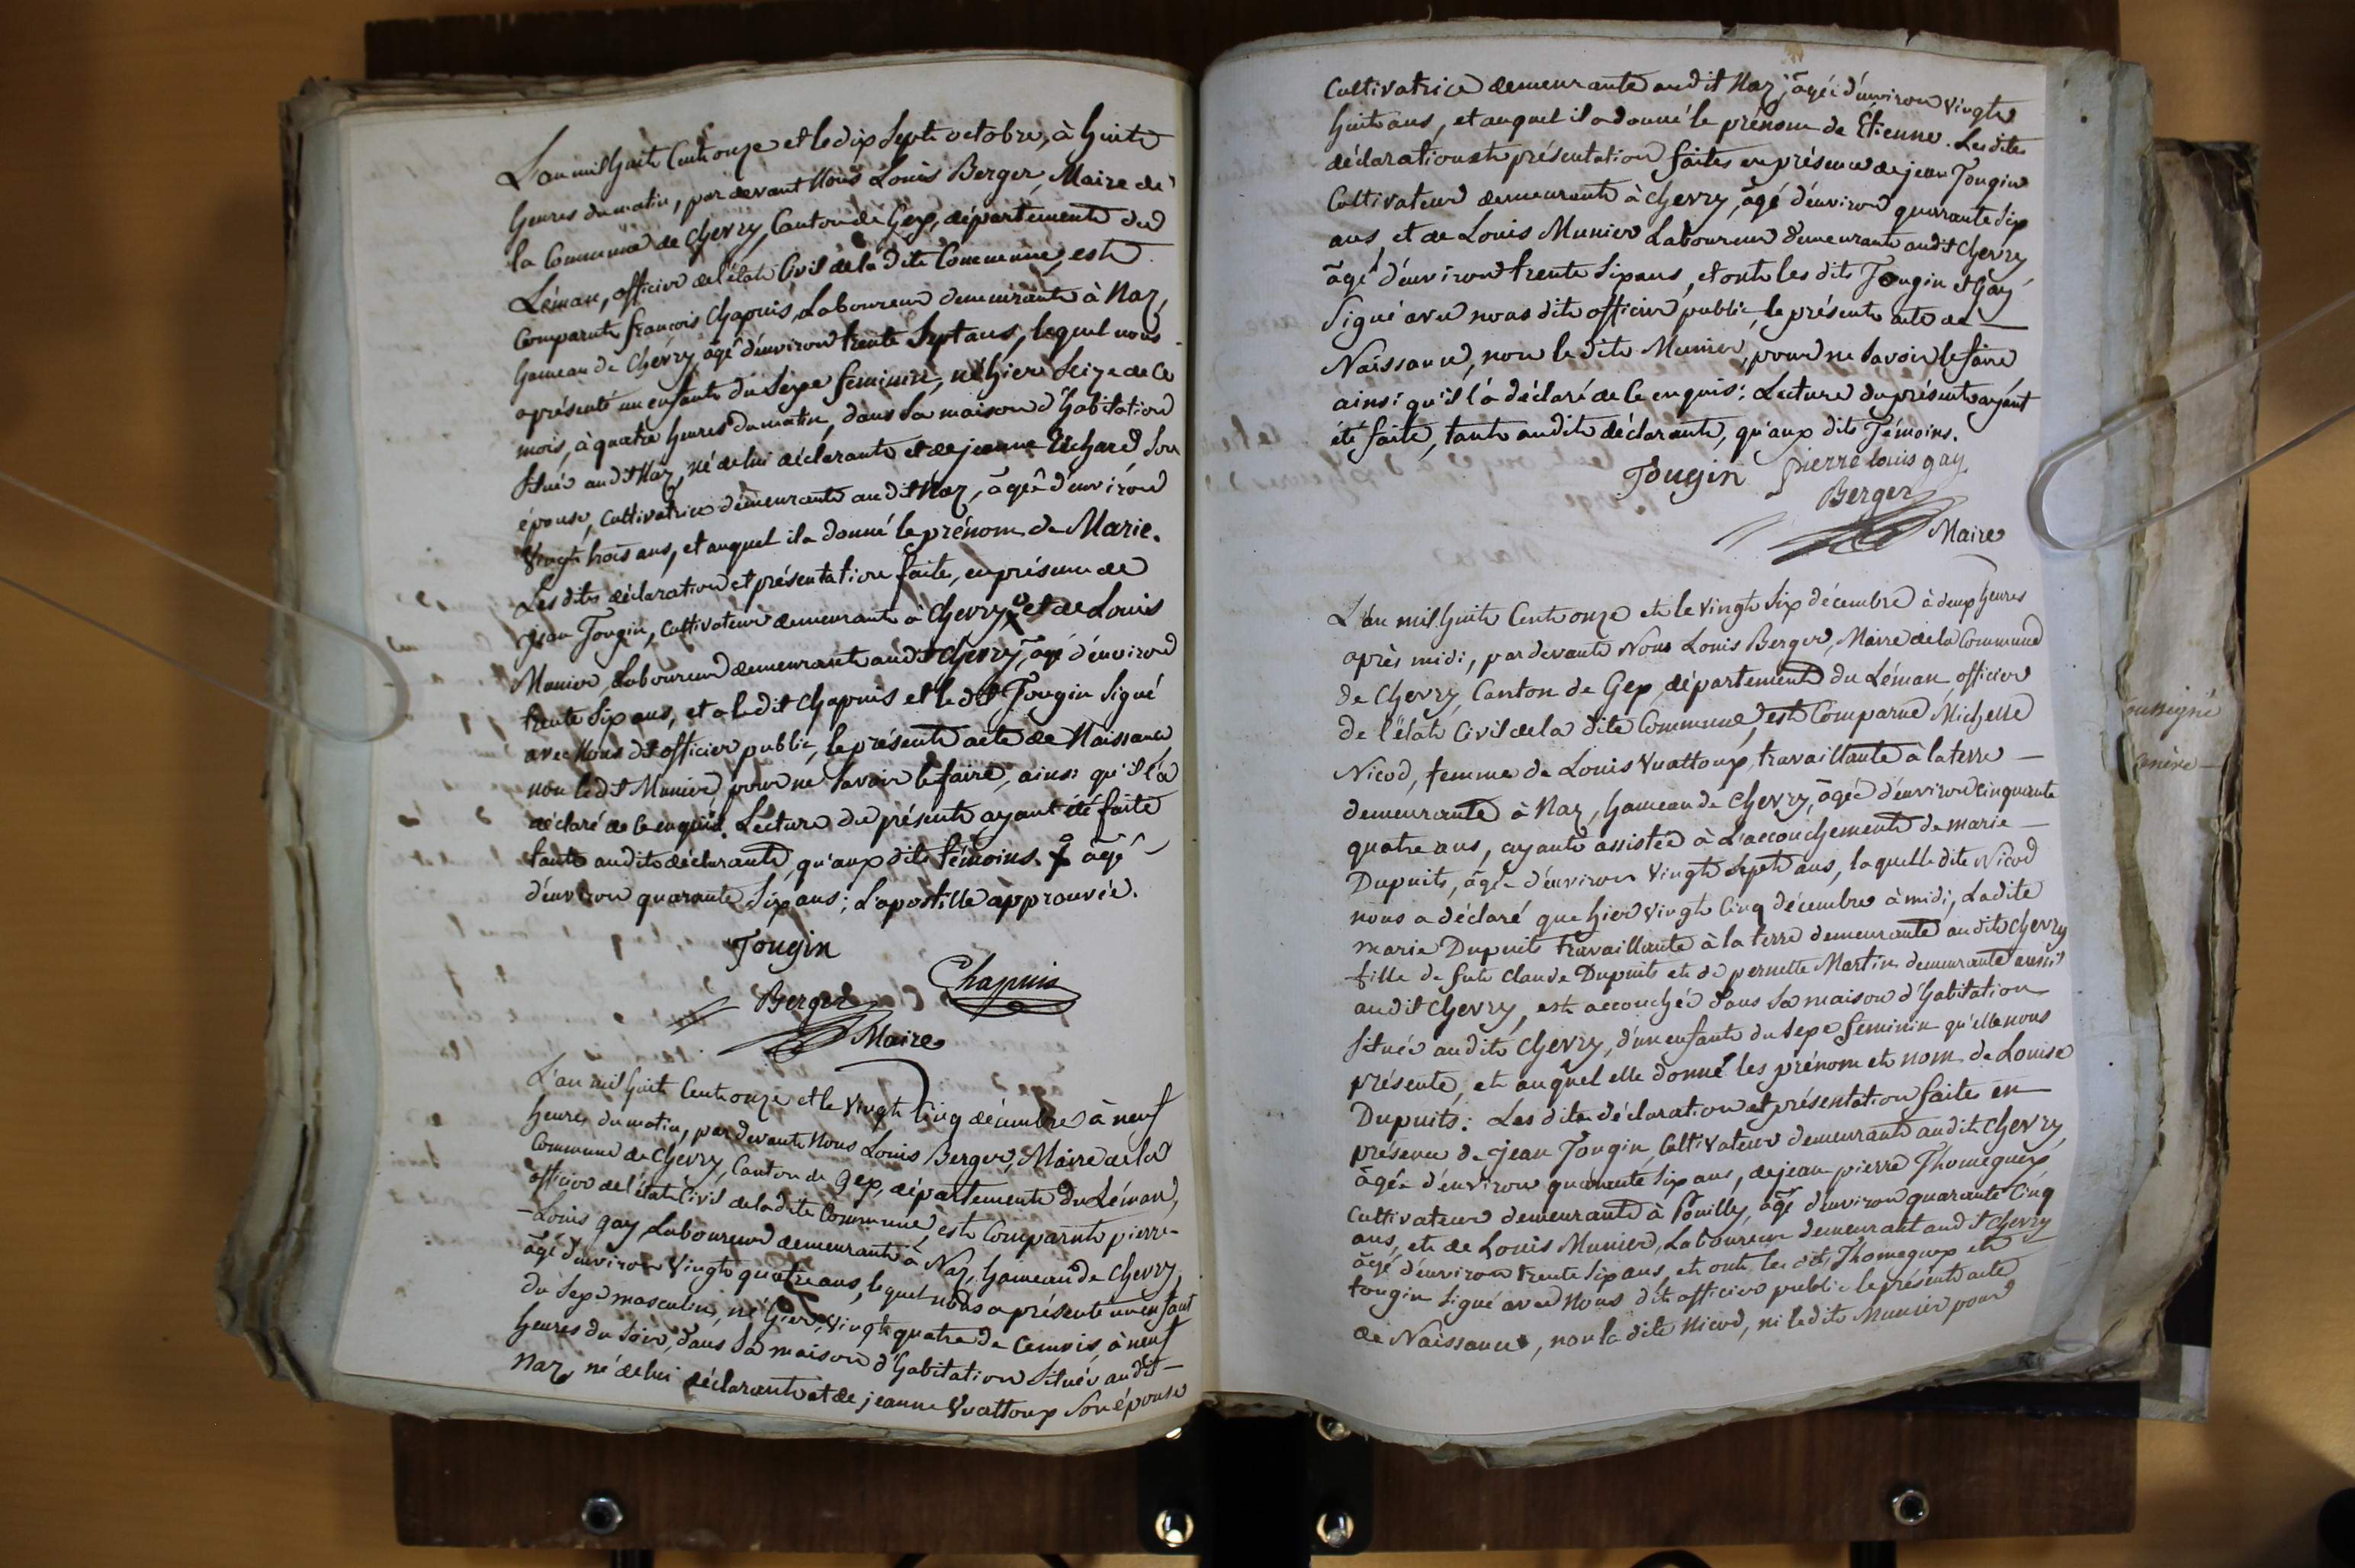 L'an mil huit Cent onze et le dix Sept octobre, à huit
heures du matin, par devant Nous Louis Berger, Maire de
la Commune de Chevry, Canton de Gex, département du
Léman, officier de l'état Civil de la dite Commune, est
Comparut françois Chapuis, Laboureur demeurant à Naz,
hameau de Chevry, âgé d'environ trente Sept ans, lequel nous
a présenté un enfant du Sexe feminin, né hier Seize de Ce
mois, à quatre heures du matin, dans Sa maison d'habitation
Située audit Naz, né de lui déclarant et de jeanne Son
épouse, Cultivatrice demeurante audit Naz, âgée d'environ
Vingt trois ans, et auquel il a donné le prénom de Marie.
Les dites déclaration et présentation faites, en présence de
jean Tougin, Cultivateur demeurant à Chevry et de Louis
Munier, Laboureur demeurant audit Chevry, âgé d'environ
trente Six ans, et a le dit Chapuis et le dit Tougin Signé
avec Nous dit officier public, le présent acte de Naissance
non le dit Munier pour ne Savoir le faire, ainsi qu'il l'a
déclaré de Ce enquis. Lecture du présent ayant été faite
tant audit déclarant, qu'aux dits témoins. âgé
d'environ quarante Six ans; L'apostille approuvée.
Tougin
Chapuis
Berger
Maire
L'an mil huit Cent onze et le Vingt Cinq décembre à neuf
heures du matin, par devant Nous Louis Berger, Maire de la
Commune de Chevry, Canton de Gex, département du Léman,
officier de l'état Civil de la dite Commune, est Comparut pierre-
-Louis gay Laboureur demeurant à Naz, hameau de Chevry,
âgé d'environ Vingt quatre ans, lequel nous a présenté un enfant
du Sexe masculin, né hier Vingt quatre de Ce mois, à neuf
heures du Soir, dans Sa maison d'habitation Située audit
Naz, né de lui déclarant et de jeanne Vuattoux Son épouse
Cultivatrice demeurante audit Naz, âgée d'environ Vingt
huit ans, et auquel il a donné le prénom de Etienne. Les dites
déclaration et présentation faites en présence de jean Tougin
Cultivateur demeurant à Chevry, âgé d'environ quarante Six
ans, et de Louis Munier Laboureur demeurant audit Chevry
âgé d'environ trente Six ans, et ont les dits Tougin et Gay
Signé avec nous dit officier public, le présent acte de
Naissance, non le dit Munier, pour ne Savoir le faire
ainsi qu'il l'a déclaré de Ce enquis: Lecture du présent ayant
été faite, tant audit déclarant, qu'aux dits Témoins.
Tougin pierre louis gay
Berger
Maire
L'an mil huit Cent onze et le Vingt Six décembre à deux heures
après midi, par devant Nous Louis Berger, Maire de la Commune
de Chevry, Canton de Gex, département du Léman, officier
de l'état Civil de la dite Commune, est Comparue Michelle
Nicod, femme de Louis Vuattoux, travaillante à la terre
demeurante à Naz, hameau de Chevry, âgée d'environ Cinquante
quatre ans, ayant assistée à L'accouchement de marie
Dupuits, âgée d'environ Vingt Sept ans, laquelle dite Nicod
nous a déclaré que hier Vingt Cinq décembre à midi, La dite
marie Dupuits travaillante à la terre demeurante audit Chevry
fille de fut Claude Dupuits et de pernette Martin demeurante aussi
audit Chevry, est accouchée dans Sa maison d'habitation
Située audit Chevry, d'un enfant du Sexe feminin qu'elle nous
présente, et auquel elle donné les prénom et nom de Louise
Dupuits: Les dites déclaration et présentation faites en
présence de jean Tougin, Cultivateur demeurant audit Chevry,
âgé d'environ quarante Six ans, de jean pierre Thomeguex
Cultivateur demeurant à Pouilly, âgé d'environ quarante Cinq
ans, et de Louis Munier, Laboureur demeurant audit Chevry
âgé d'environ trente Six ans, et ont les dits Thomeguex et
tougin Signé avec Nous dit officier public le présent acte
de Naissance, non la dite Nicod, ni le dit Munier pour